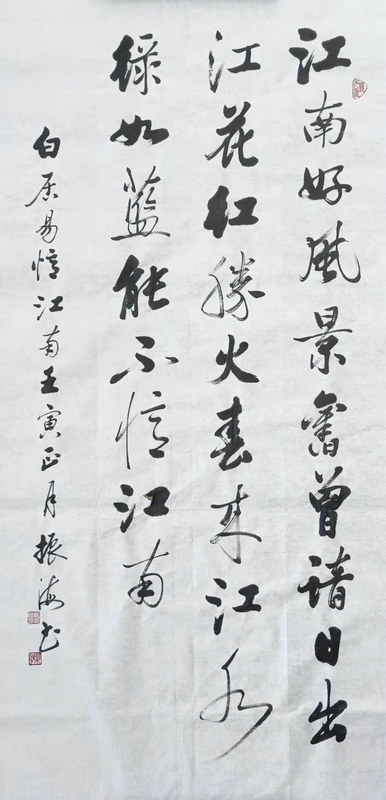 江南好風景舊曾諳日出
江花紅勝火春來江水
綠如藍能不憶江南
白居易憶江南壬寅正月振海书